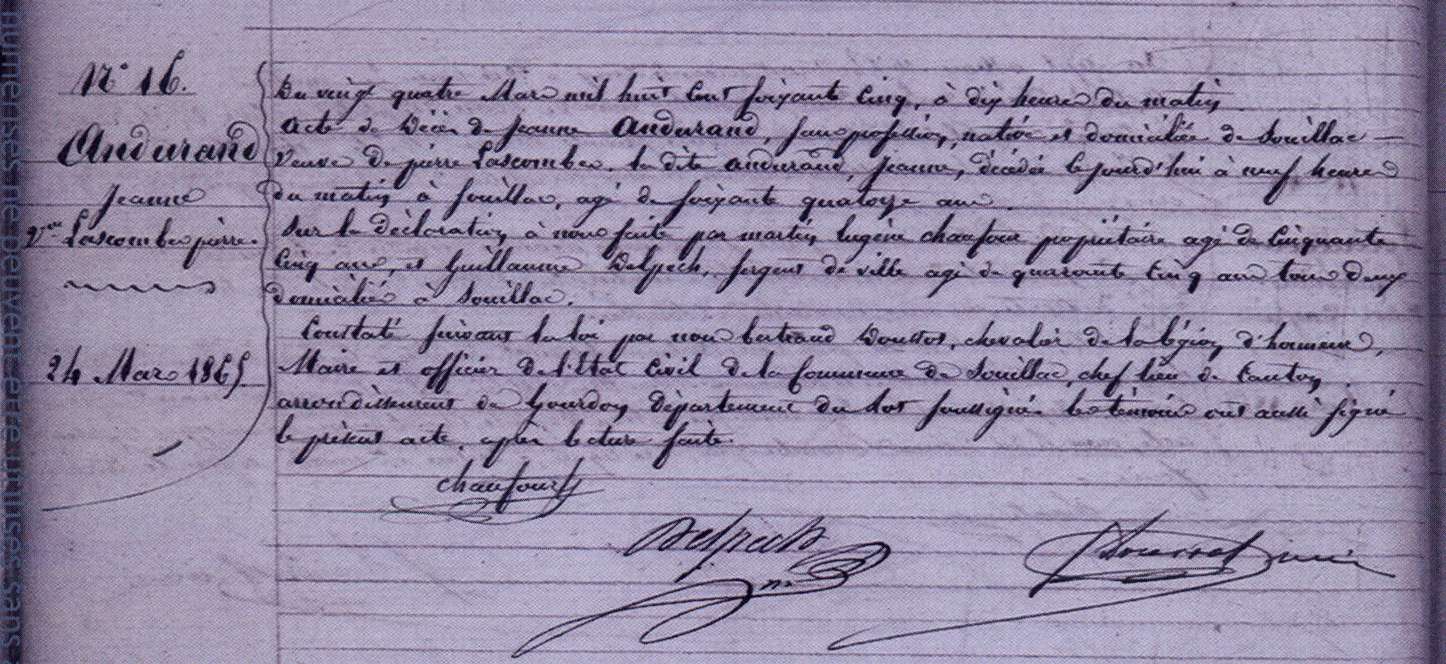 N° 16.
Andurand
Jeanne
Vve Lascombes pierre.
24 Mars 1865.
Du vingt quatre Mars mil huit cent soixante cinq, à dix heures du matin
Acte de Décès de Jeanne Andurand, sans profession, native et domiciliée de Souillac
Veuve de pierre Lascombes. la dite andurand, Jeanne, décédée ce jourd'hui à neuf heures
du matin à Souillac, agé de soixante quatorze ans.
Sur la déclaration à nous faite par martin Eugène chaufour propriétaire agé de Cinquante
Cinq ans, et Guillaume Delpech, sergent de ville agé de quarante Cinq ans tous deux
domiciliés à Souillac.
Constaté suivant la loi par nous bertrand chevalier de la légion d'honneur,
Maire et officier de l'Etat Civil de la Commune de Souillac, chef lieu de Canton,
arrondissement de Gourdon Département du Lot soussigné. les témoins ont aussi signé
le présent acte, après lecture faite.
chaufour
Delpech